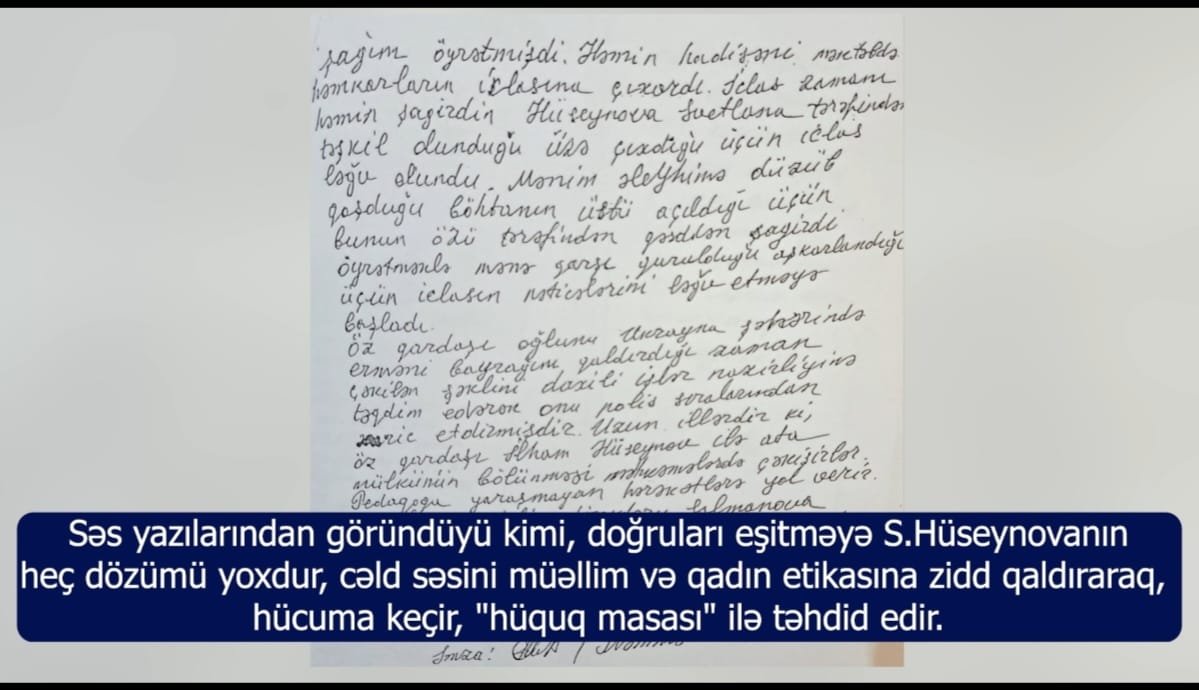 şagim öyrətmişdi. Həmin hadisəni məktəbdə
həmkarların iclasına çıxardı. İclas zamanı
həmin şagirdin Hüseynova Svetlana tərəfindən
təşkil olunduğu üzə çıxdığı üçün iclas
ləğv olundu. Mənim əleyhimə düzüb
qoşduğu böhtanın üstü açıldığı üçün
bunun özü tərəfindən qəsdən şagirdi
öyrətməklə mənə qarşı qurulduğu aşkarlandığı
üçün iclasın nəticələrini ləğv etməyə
başladı.
Öz qardaşı oğlunu Ukrayna şəhərində
erməni bayrağını qaldırdığı zaman
çəkilən şəklini daxili işlər nazirliyinə
təqdim edərək onu polis sıralarından
xaric etdirmişdir. Uzun illərdir ki,
öz qardaşı İlham Hüseynov ilə ata
mülkünün bölünməsi məhkəmələrdə çəkişirlər.
Pedaqoqa yaraşmayan hərəkətlərə yol verir.
Səs yazılarından göründüyü kimi, doğruları eşitməyə S.Hüseynovanın
heç dözümü yoxdur, cəld səsini müəllim və qadın etikasına zidd qaldıraraq,
hücuma keçir, "hüquq masası" ilə təhdid edir.
İmza: